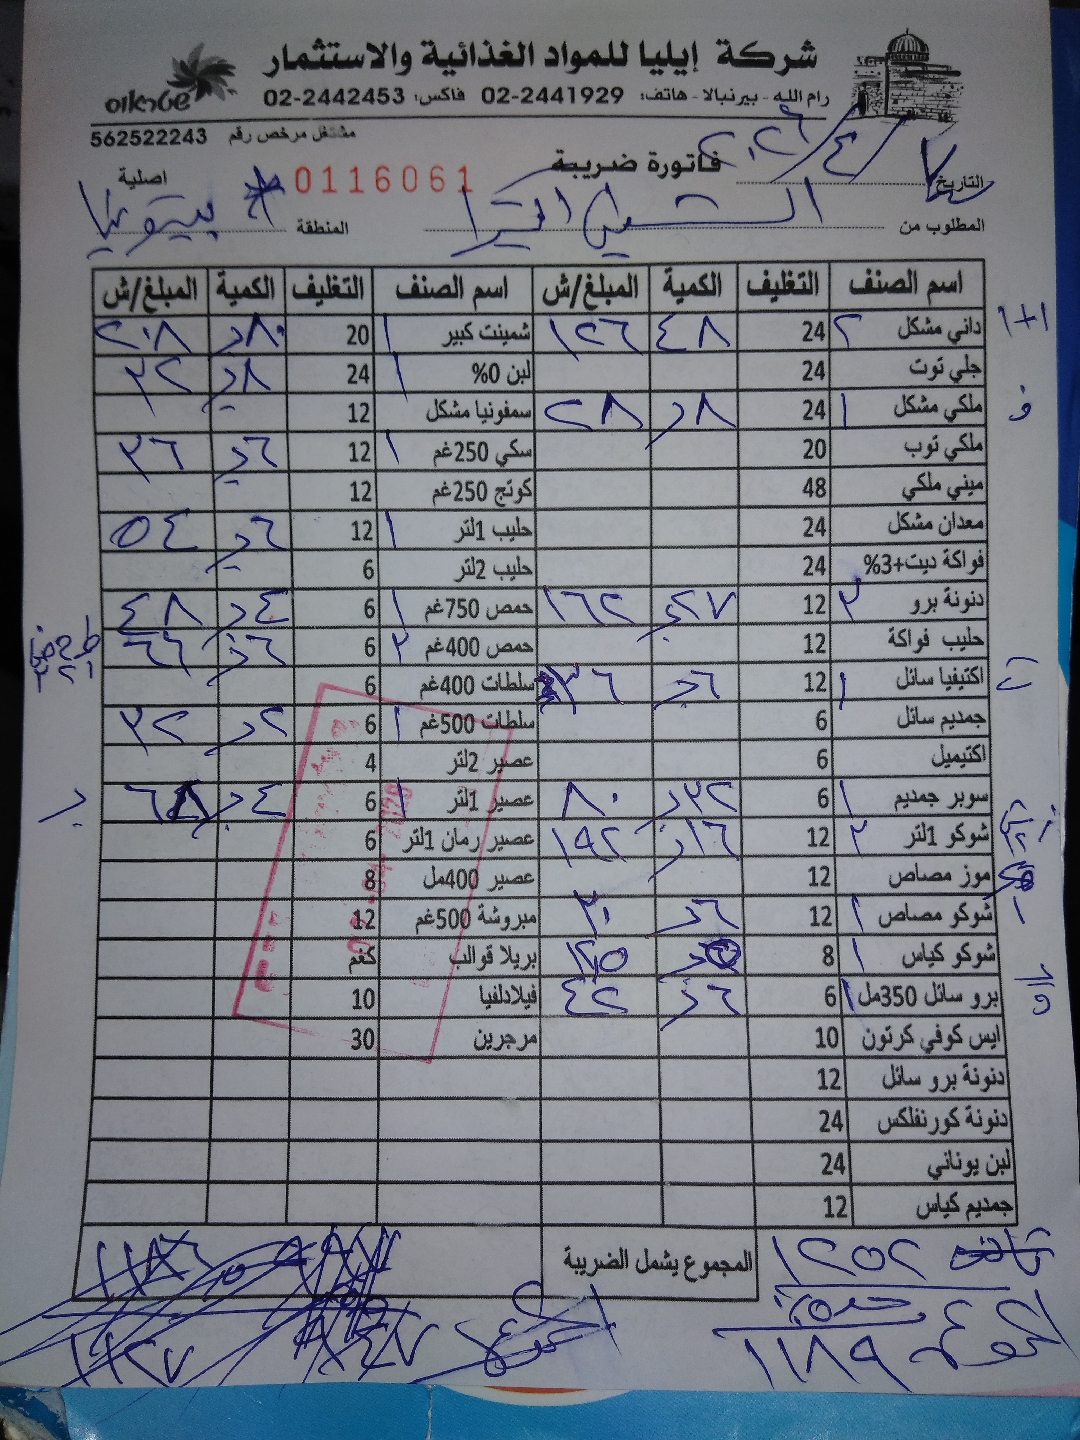 شركة إيليا للمواد الغذائية والاستثمار
رام الله - بيرنبالا - هاتف: 02-2441929 فاكس: 02-2442453
شتراوس
مشتغل مرخص رقم 562522243
فاتورة ضريبة
التاريخ ٧/٤/٢٠٢٦
0116061 اصلية
المطلوب من
المنطقة بيتونيا
اسم الصنف التغليف الكمية المبلغ/ش اسم الصنف التغليف الكمية المبلغ/ش
١+١
داني مشكل ٢ 24 ٤٨ ١٢٦ شمينت كبير ١ 20 ٨٠ ٢٠٨
جلي توت 24 لبن 0% ١ 24 ٨ ٣٢
ملكي مشكل ١ 24 ٨ ٢٨ سمفونيا مشكل 12
ملكي توب 20 سكي 250غم ١ 12 ٦ ٣٦
ميني ملكي 48 كوتج 250غم 12
معدان مشكل 24 حليب 1لتر ١ 12 ٦ ٥٤
فواكة ديت+3% 24 حليب 2لتر 6
دنونة برو ٢ 12 ٢٧ ١٦٢ حمص 750غم ١ 6 ٤ ٤٨
حليب فواكة 12 حمص 400غم ٢ 6 ٦ ٦٦
اكتيفيا سائل ١ 12 ٦ ٣٦ سلطات 400غم 6
جمديم سائل 6 سلطات 500غم ١ 6 ٢ ٣٢
اكتيميل 6 عصير 2لتر 4
سوبر جمديم ١ 6 ٣٢ ٨٠ عصير 1لتر ١ 6 ٤
شوكو 1لتر ٢ 12 ١٦ ١٩٢ عصير رمان 1لتر 6
موز مصاص 12 عصير 400مل 8
شوكو مصاص ١ 12 ٦ ٣٠ مبروشة 500غم 12
شوكو كياس ١ 8 بريلا قوالب كغم
برو سائل 350مل ١ 6 ٦ ٤٢ فيلادلفيا 10
ايس كوفي كرتون 10 مرجرين 30
دنونة برو سائل 12
دنونة كورنفلكس 24
لبن يوناني 24
جمديم كياس 12
المجموع يشمل الضريبة
١٢٥٢
خصم ٥٪
المجموع ١١٨٩
المجموع